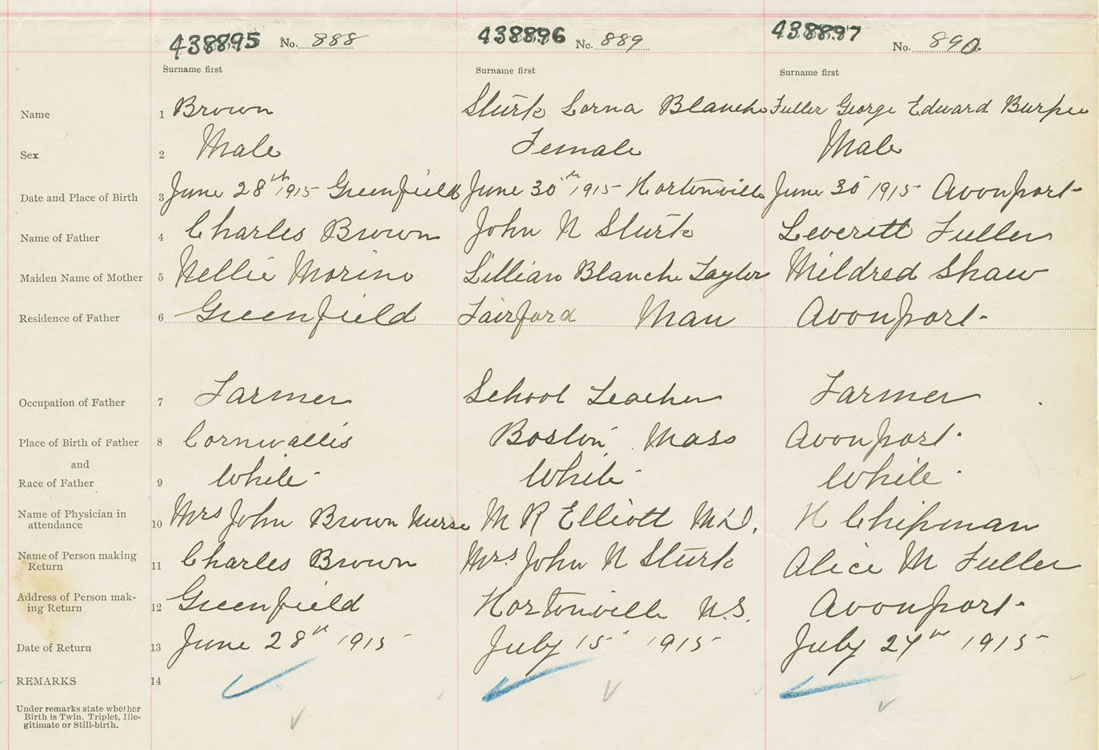 438895 No. 888 438896 No. 889 438897 No. 890
Surname first Surname first Surname first
Name 1 Brown Sturk Lorna Blanche Fuller George Edward Burpee
Sex 2 Male Female Male
Date and Place of Birth 3 June 28th 1915 Greenfield June 30th 1915 Hortonville June 30 1915 Avonport
Name of Father 4 Charles Brown John N Sturk Leverett Fuller
Maiden Name of Mother 5 Nellie Morine Lillian Blanche Taylor Mildred Shaw
Residence of Father 6 Greenfield Fairford Man Avonport
Occupation of Father 7 Farmer School Teacher Farmer
Place of Birth of Father 8 Cornwallis Boston Mass Avonport
and
Race of Father 9 White White White
Name of Physician in
attendance 10 Mrs John Brown Nurse M R Elliott M.D. H Chipman
Name of Person making
Return 11 Charles Brown Mrs. John N Sturk Alice M Fuller
Address of Person mak-
ing Return 12 Greenfield Hortonville N.S. Avonport
Date of Return 13 June 28th 1915 July 15 1915 July 27th 1915
REMARKS 14
Under remarks state whether
Birth is Twin, Triplet, Ille-
gitimate or Still-birth.